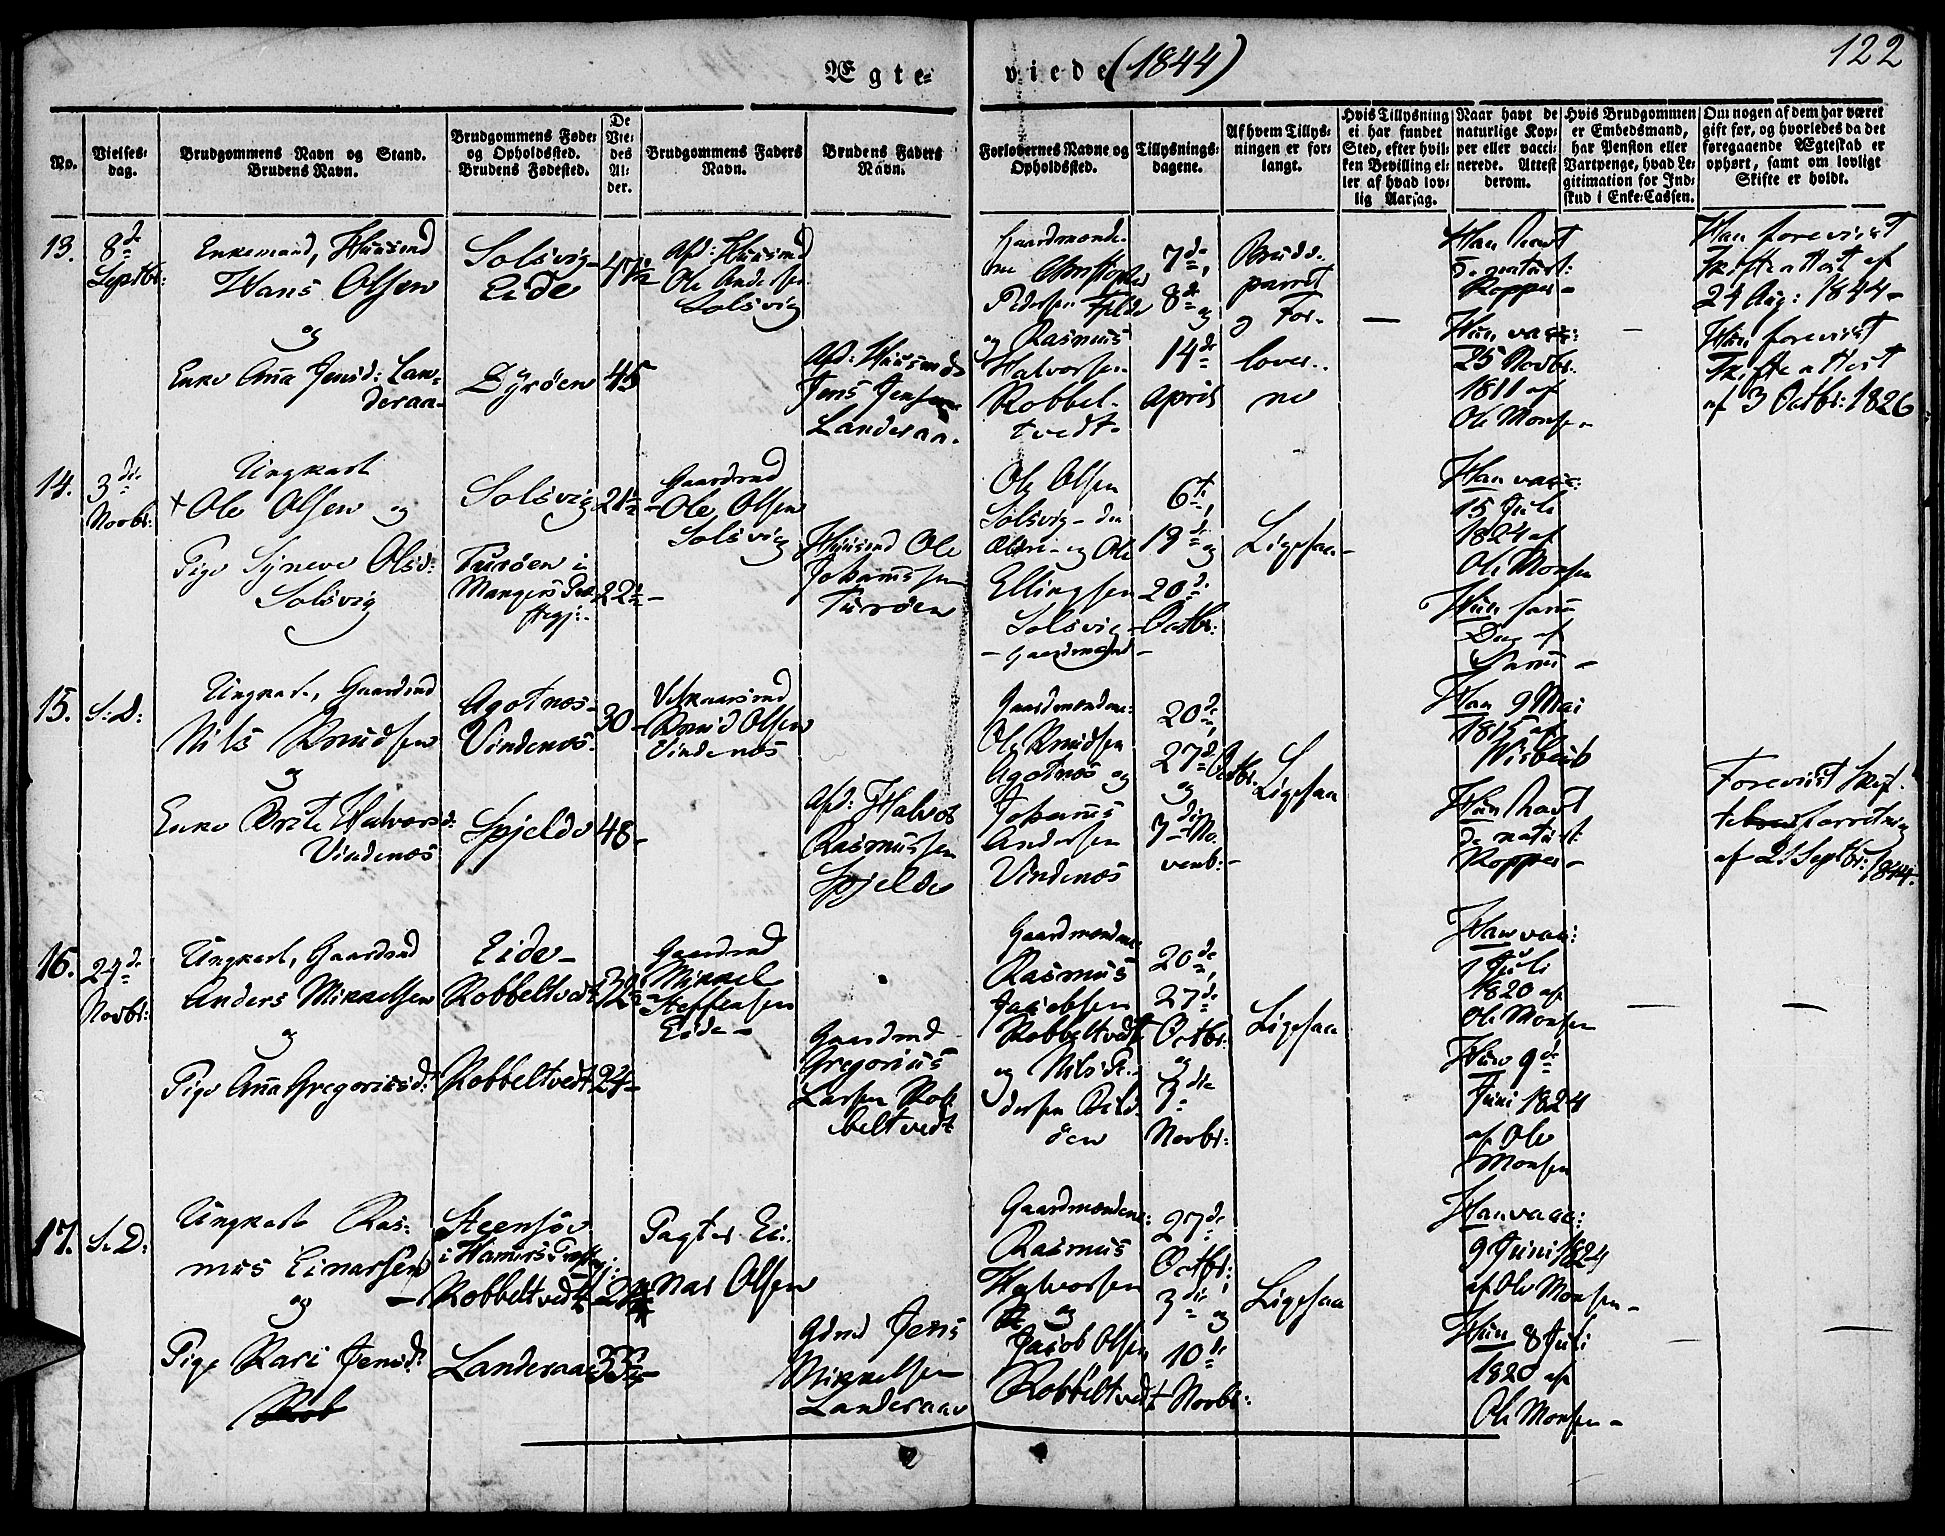 Ægte- viede (1844)
122
No.
Vielses-
dag.
Brudgommens Navn og Stand.
Brudens Navn.
Brudgommens Føde-
og Opholdssted.
Brudens Fødested.
De
Vie-
des
Al-
der.
Brudgommens Faders
Navn.
Brudens Faders
Navn.
Forlovernes Navne og
Opholdssted.
Tillysnings-
dagene.
Af hvem Tillys-
ningen er for-
langt.
Hvis Tillysning
ei har fundet
Sted, efter hvil-
ken Bevilling el-
ler af hvad lov-
lig Aarsag.
Naar havt de
naturlige Kop-
per eller vacci-
nerede. Attest
derom.
Hvis Brudgommen
er Embedsmand,
har Pension eller
Vartpenge, hvad Le-
gitimation for Ind-
skud i Enke-Cassen.
Om nogen af dem har været
gift før, og hvorledes da det
foregaaende Ægteskab er
ophørt, samt om lovligt
Skifte er holdt.
13.
8de
Septbr:
Enkemand, Huusmd
Hans Olsen
og
Enke Anna Jensd: Lan-
deraa-
Solsvig-
Eide
Dyrøen
47½
45
Afd: Huusmd
Ole Anderssen
Solsvig
Afd: Huusmd
Jens Jensen
Landeraa.
Gaardmænde-
ne Christopher
Pedersen Fjelde
og Rasmus
Halvorsen
Robbel-
tvedt-
7de,
8de og
14de
April
Brude-
parret
og For-
lover-
ne
—
Han havt
de naturl:
Kopper-
Hun vacc:
25 Novbr:
1811 af
Ole Monsen
—
Han foreviist
Skifteattest af
24 Aug: 1844-
Hun foreviist
Skifteattest
af 3 Octbr: 1826
14.
3die
Novbr:
Ungkarl
+ Ole Olsen og
Pige Syneve Olsd:
Solsvig
Solsvig
Turøen i
Mangers Præ-
stegj:-
21½-
22½-
Gaardmd
Ole Olsen
Solsvig
Huusmd Ole
Johannssen
Turøen
Ole Olsen
Solsvig- den
Ældre- og Ole
Ellingsen
Solsvig-
- Gaardmænd -
6te,
19de og
20de
Octbr:
Ligesaa-
Han vacc:
15 Juli
1824 af
Ole Monsen
Hun samme
Dag af
Samme -
15.
S: D:
Ungkarl, Gaardmd
Nils Knudsen
og
Enke Brite Halvorsd:
Vindenæs
Agotnæs-
Vindenæs-
Spjelde
30-
48-
Knud Olsen
Vindenæs
Afd: Halvor
Rasmussen
Spjelde
Gaardmændene:
Ole Knudsen
Agotnæs og
Johannes
Andersen
Vindenæs
20de,
27de Octbr.
og
3die No-
venb:-
Ligesaa
Han 9 Mai
1815 af
Hun havt
de naturl:
Kopper-
Foreviist Skif-
forretning
af 21 Septbr: 1844.
16.
24de
Novbr:
Ungkarl, Gaardmd
Anders Mikkelsen
og
Pige Anna Gregoriusd:
Eide-
Robbeltvedt
Robbeltvedt
24-
Gaardmd
Mikkel
Steffensen
Eide-
Gaardmd
Gregorius
Larsen Rob-
beltvedt
Gaardmændene
Rasmus
Jacobsen
Robbeltvedt
og Nils Pe-
dersen Bild-
øen
20de,
27de
Octbr:
og
3die
Novbr:
Ligesaa
Han vacc:
1 Juli
1820 af
Ole Monsen
Hun 9de
Juni 1824
af Ole
Monsen
—
—
17.
S: D:
Ungkarl Ras-
mus Einarsen
og -
Pige Kari Jensd:
Rob
i Hammers Præstegj:
Robbeltvedt
Landeraae
Pagter Ei-
nar Olsen
Gdmd Jens
Mikkelsen
Landeraae
Gaardmændene:
Rasmus
Halvorsen
og
Jacob Olsen
Robbeltvedt
27de
Octbr:,
3die og
10de
Novbr:
Ligesaa
Han vacc:
9 Juni 1824
af Ole Monsen-
Hun 8 Juli
1820 af
Ole Monsen-
—
—